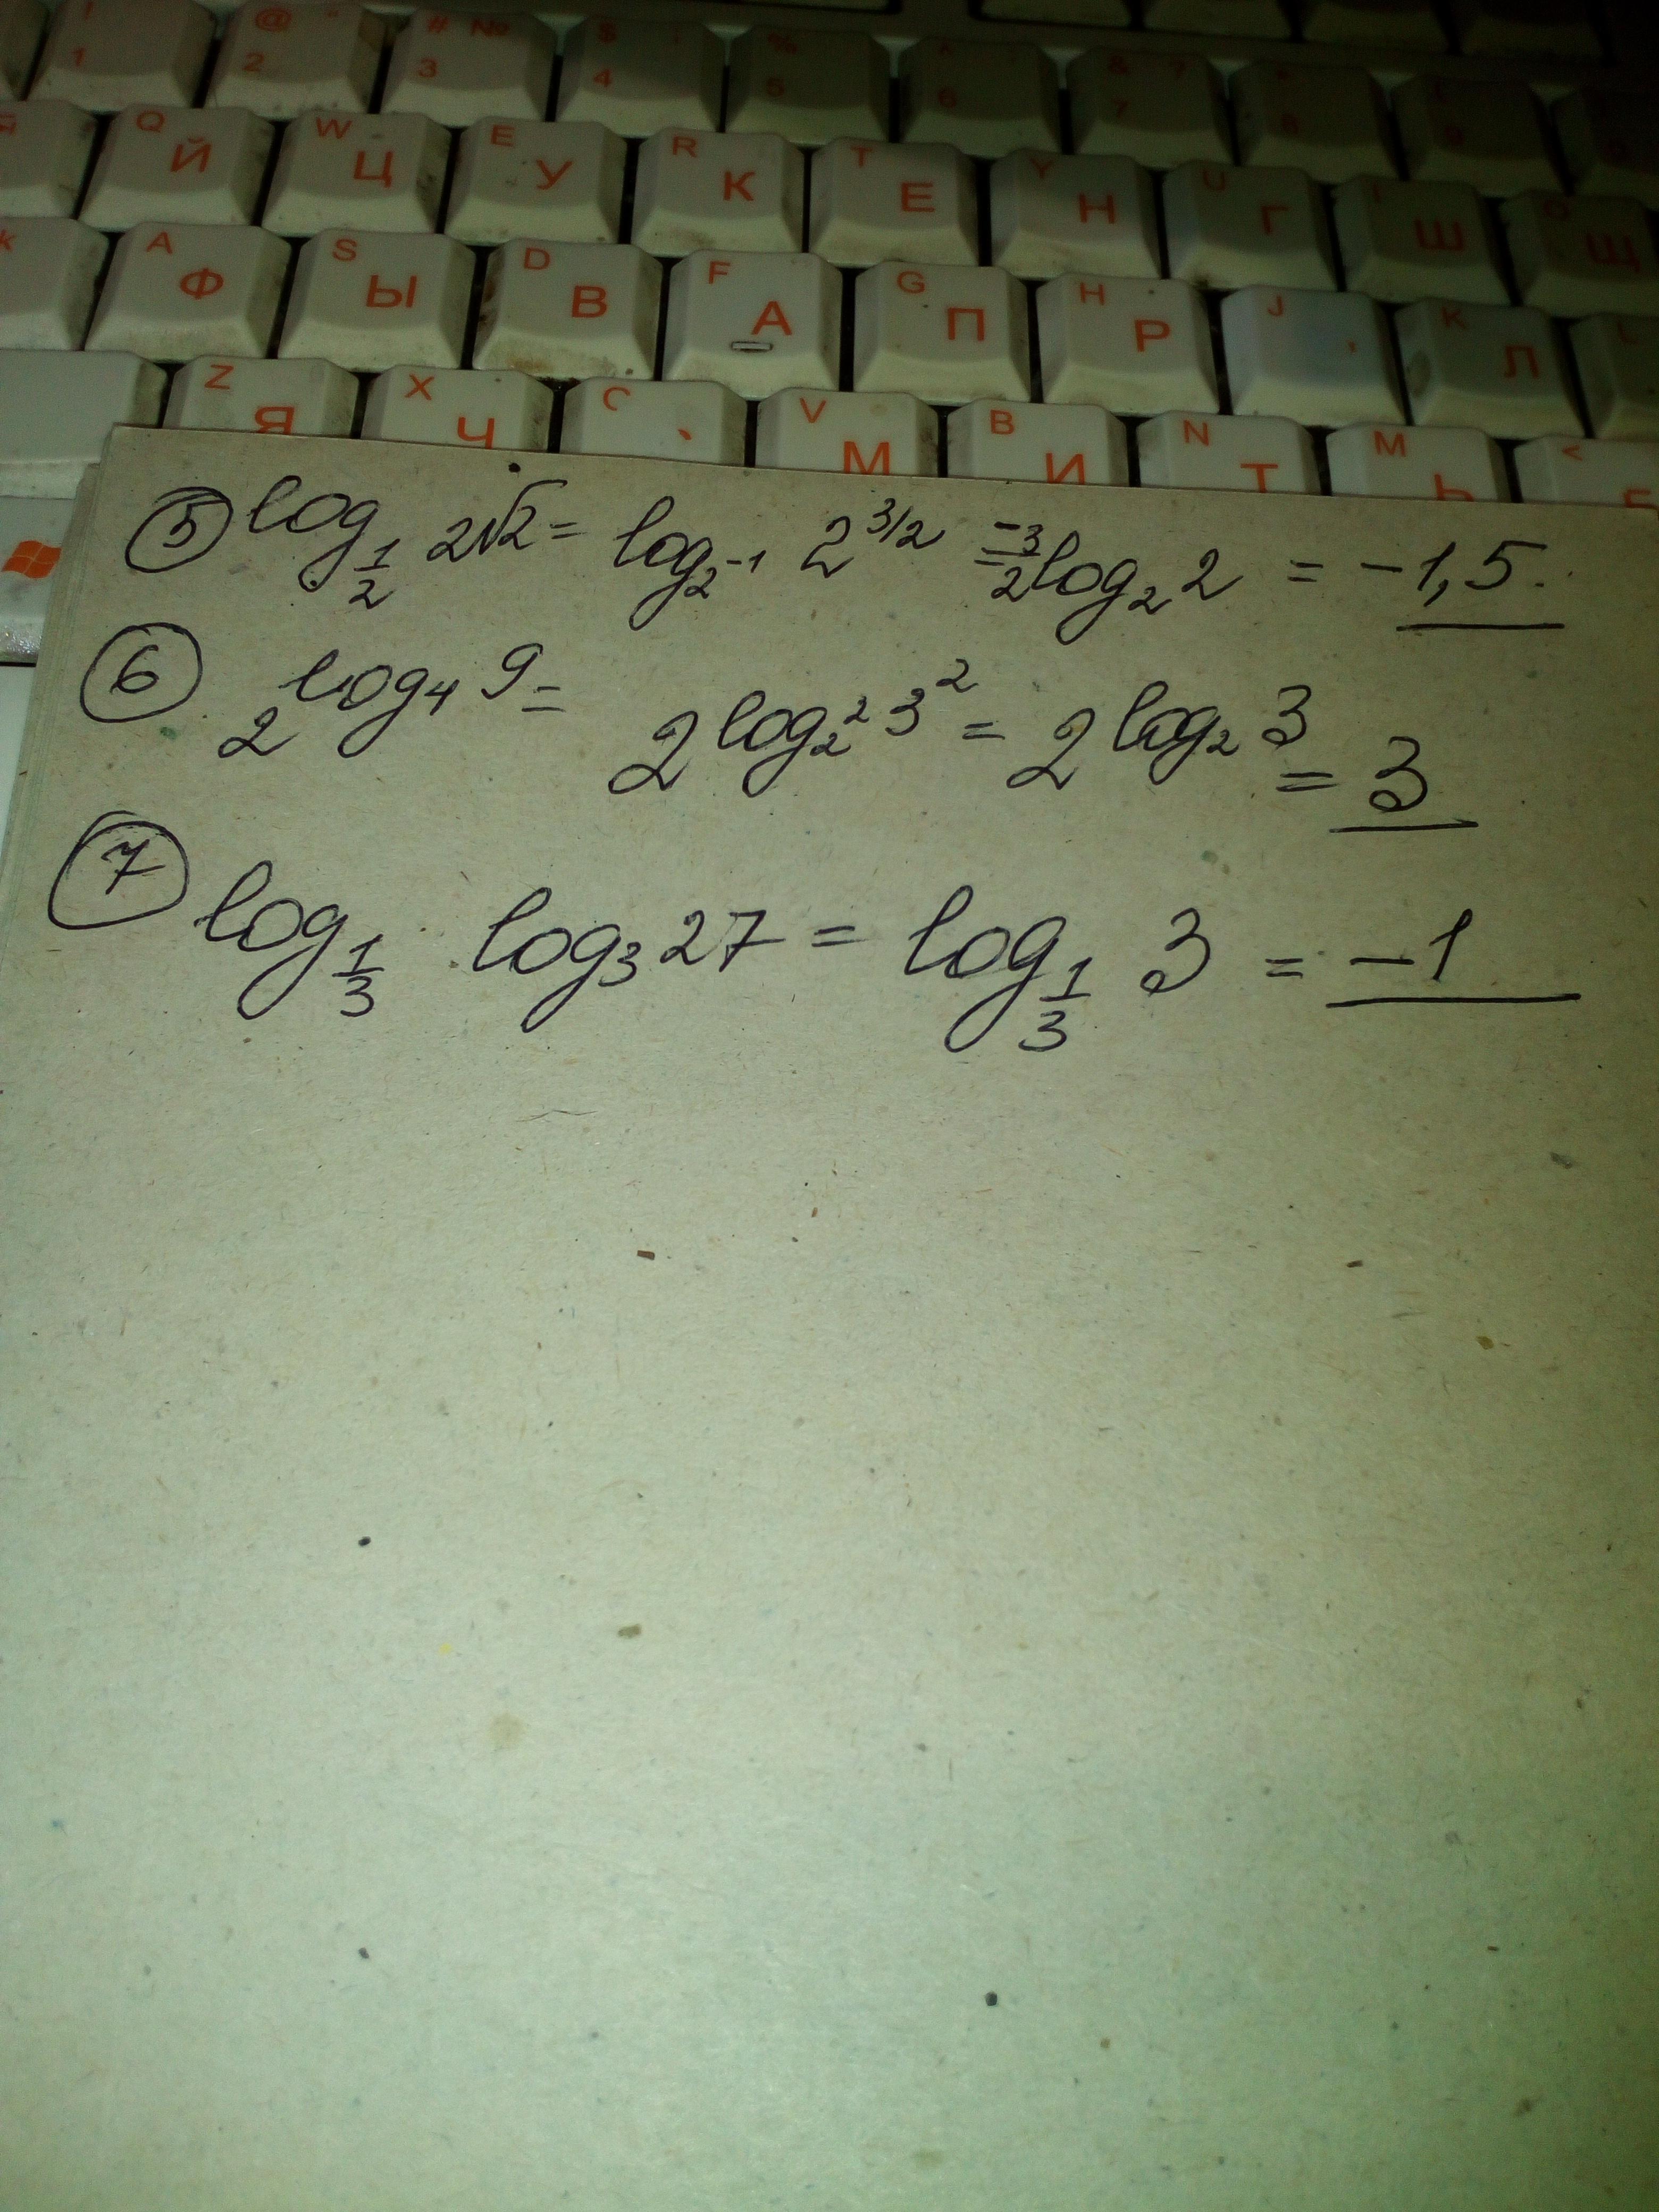 ! 1 @ " 2 # № 3 $ ; 4 % 5 6 & ? 7 8 9
Q Й W Ц E У R К T Е Y Н U Г I Ш O Щ
A Ф S Ы D В F А G П H Р J K Л L
Z Я X Ч C V М B И N Т M Ь <
5 log_{1/2} 2√2 = log_{2^{-1}} 2^{3/2} = -3/2 log_2 2 = -1,5.
6 2^{log_4 9} = 2^{log_{2^2} 3^2} = 2^{log_2 3} = 3
7 log_{1/3} log_3 27 = log_{1/3} 3 = -1